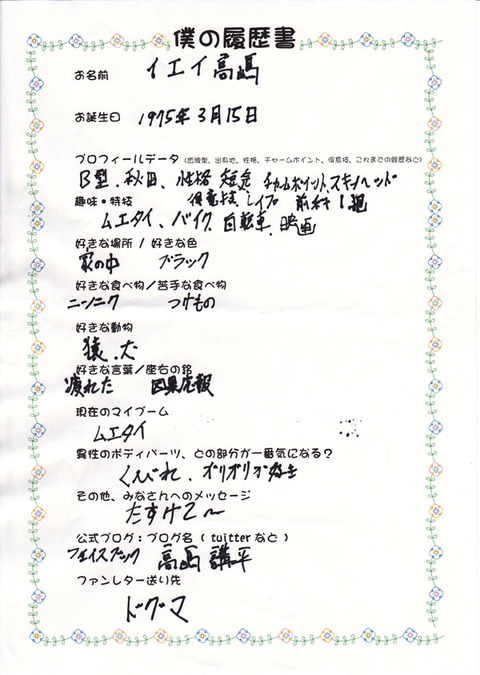 僕の履歴書
お名前 イエイ高嶋
お誕生日 1975年3月15日
プロフィールデータ(血液型、出身地、性格、チャームポイント、得意技、これまでの履歴など)
B型、秋田、性格 短気 チャームポイント、スキンヘッド
得意技、レイプ 前科1犯
趣味・特技
ムエタイ、バイク、自転車、映画
好きな場所 / 好きな色
家の中 ブラック
好きな食べ物/苦手な食べ物
ニンニク つけもの
好きな動物
猿、犬
好きな言葉/座右の銘
疲れた 因果応報
現在のマイブーム
ムエタイ
異性のボディパーツ、どの部分が一番気になる?
くびれ、ガリガリが好き
その他、みなさんへのメッセージ
たすけて〜
公式ブログ:ブログ名 ( twitterなど )
フェイスブック 高嶋 講平
ファンレター送り先
ドグマ